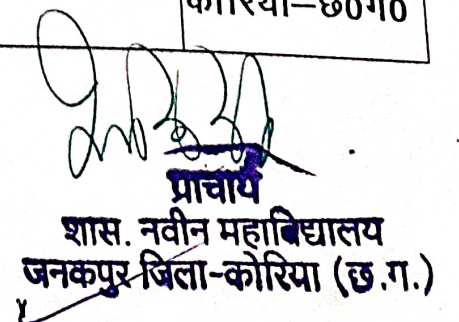 कोरिया–छ0ग0
प्राचार्य
शास. नवीन महाविद्यालय
जनकपुर जिला-कोरिया (छ.ग.)